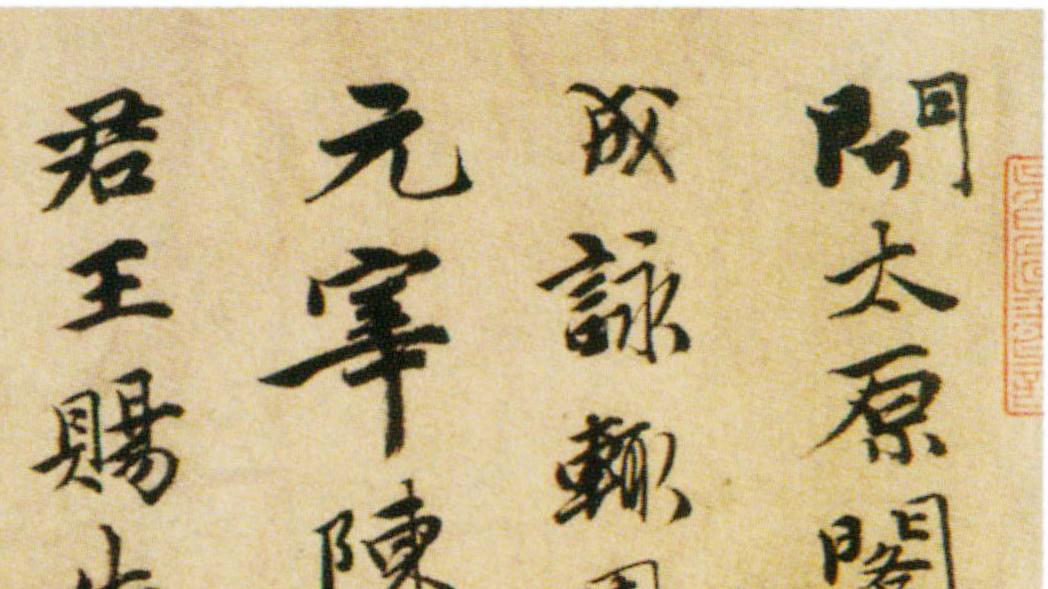 太原閣
成詠輒
元宰陳
君王賜